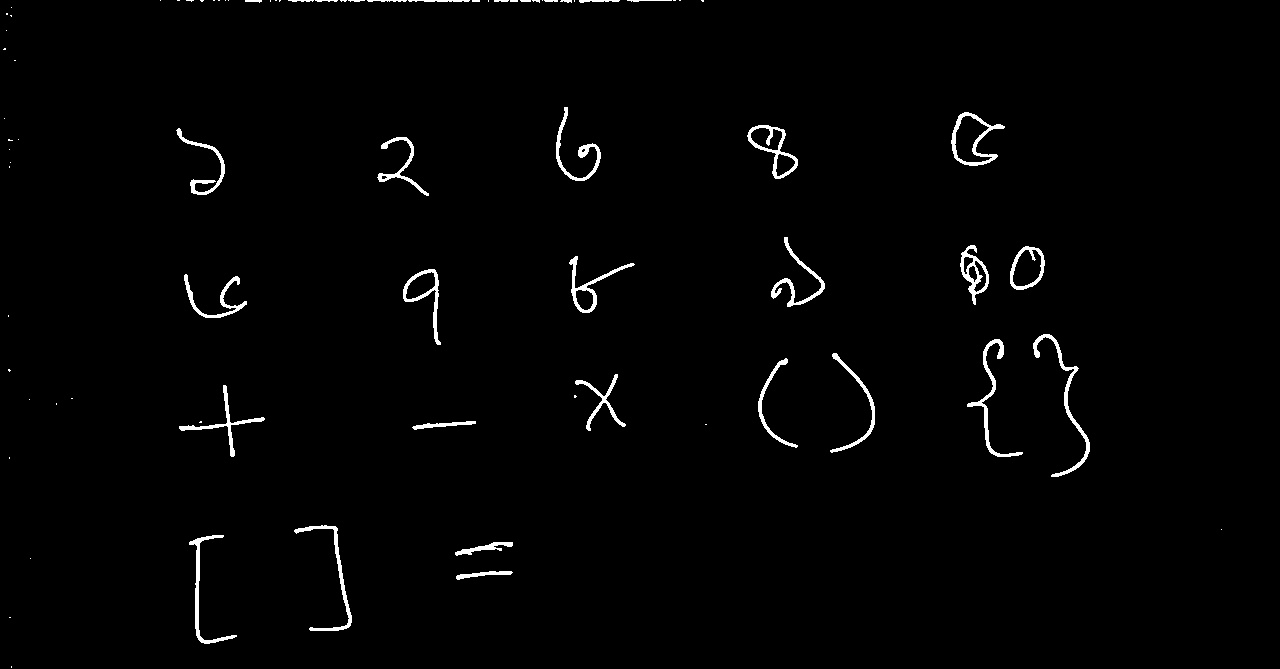 ১ ২ ৩ ৪ ৫
৬ ৭ ৮ ৯ ১০
+ - × ( ) { }
[ ] =